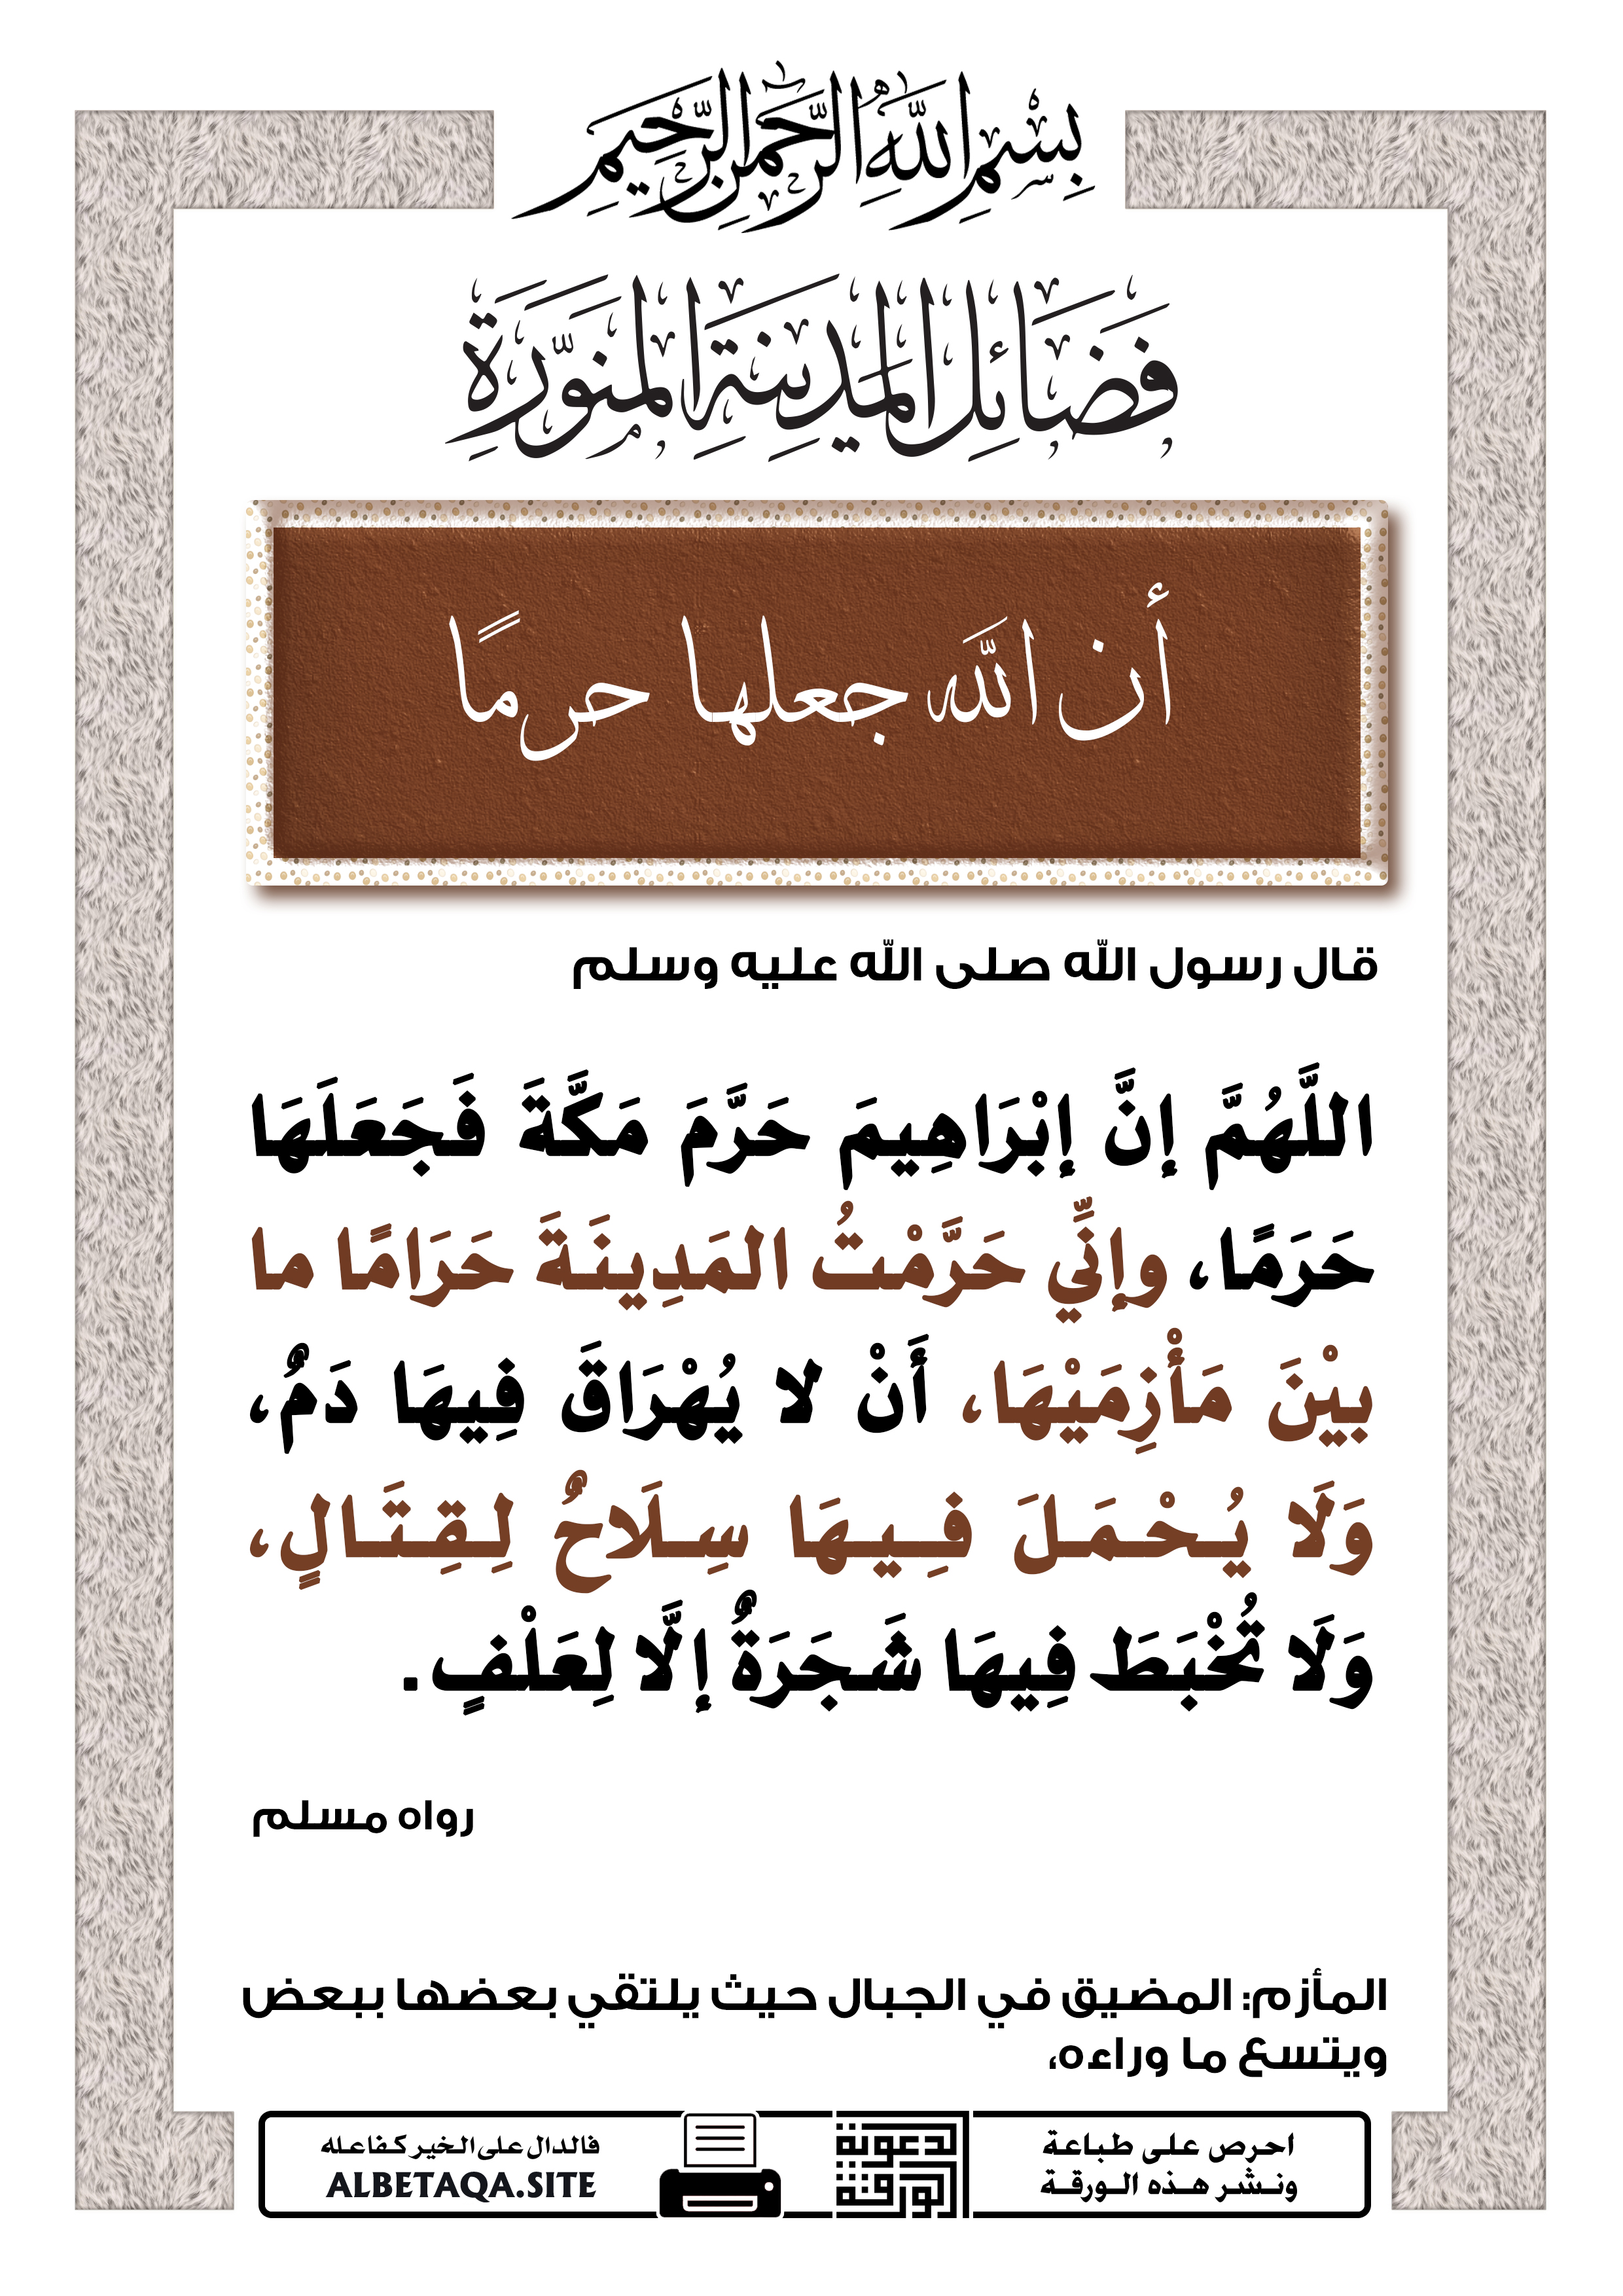 بِسْمِ اللَّهِ الرَّحْمَنِ الرَّحِيمِ
فَضَائِلُ الْمَدِينَةِ الْمُنَوَّرَةِ
أن الله جعلها حرمًا
قال رسول الله صلى الله عليه وسلم
اللَّهُمَّ إنَّ إبْرَاهِيمَ حَرَّمَ مَكَّةَ فَجَعَلَهَا
حَرَمًا، وإنِّي حَرَّمْتُ المَدِينَةَ حَرَامًا ما
بيْنَ مَأْزِمَيْهَا، أَنْ لا يُهْرَاقَ فِيهَا دَمٌ،
وَلَا يُحْمَلَ فِيهَا سِلَاحٌ لِقِتَالٍ،
وَلَا تُخْبَطَ فِيهَا شَجَرَةٌ إلَّا لِعَلْفٍ.
رواه مسلم
المأزم: المضيق في الجبال حيث يلتقي بعضها ببعض
ويتسع ما وراءه،
احرص على طباعة
ونشر هذه الورقة
الورقة
الدعوية
فالدال على الخير كفاعله
ALBETAQA.SITE